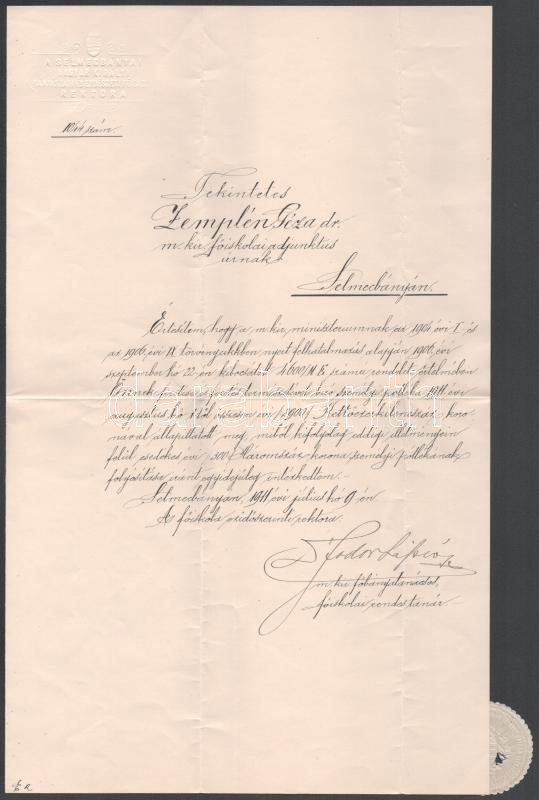 A SELMECBÁNYAI
REKTORA
szám.
Tekintetes
Zemplén Géza dr.
m. kir. főiskolai adjunktus
úrnak
Selmecbányán.
Értesítem, hogy a m. kir. miniszteriumnak az évi I. és
az 1906. évi törvényekben nyert felhatalmazás alapján 1906. évi
szeptember hó 22-én kibocsátott számú rendelet értelmében
Önnek fizetés természetével bíró személyi pótléka 1911 évi
augusztus hó 1-től évi /2900/ Kettőezerkilencszáz koro-
nával állapíttatott meg, miből kifolyólag eddigi illetményein
felül esedékes évi 300 Háromszáz korona személyi pótlékának
folyósítása iránt egyidejűleg intézkedtem.-
Selmecbányán, 1911. évi július hó 9-én
A főiskola ezidőszerinti rektora:
Fodor László
m. kir. főbányatanácsos,
főiskolai rendes tanár.